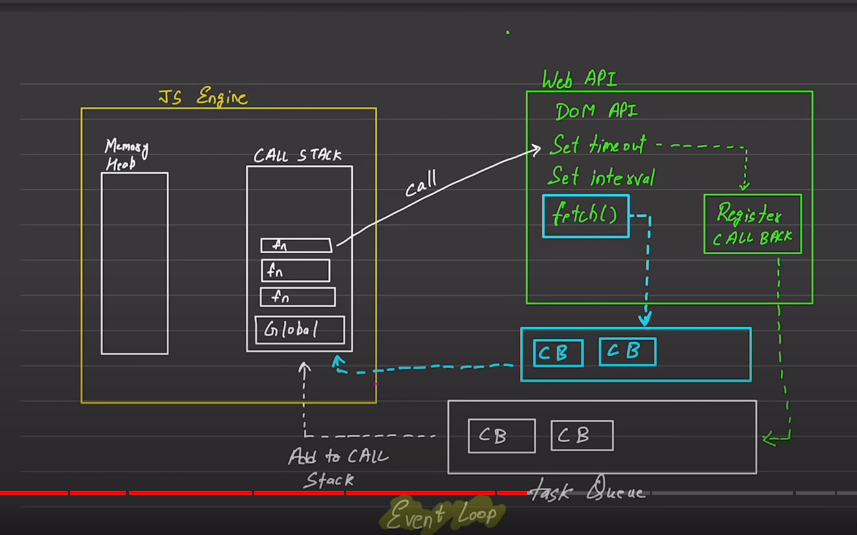 JS Engine
Memory
Heap
CALL STACK
fn
fn
fn
Global
call
Web API
DOM API
Set timeout
Set interval
fetch()
Register
CALL BACK
CB
CB
CB
CB
Add to CALL
Stack
task Queue
Event Loop